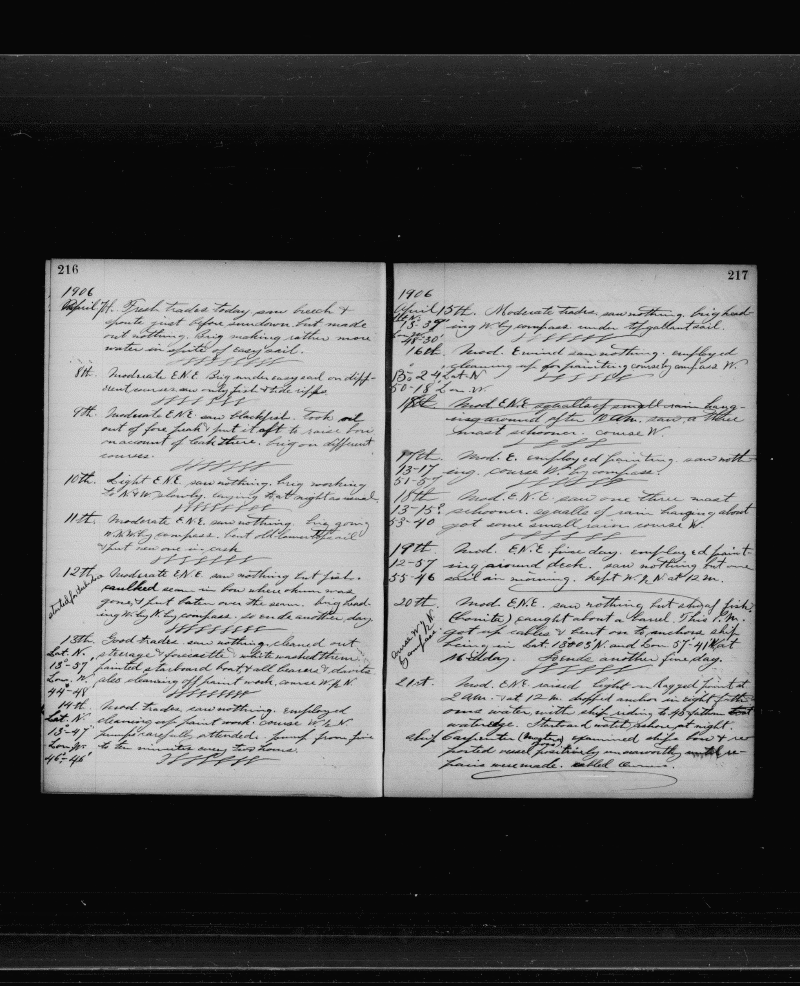 216
1906
April 7th. Fresh trades today saw breech &
spouts just before sundown but made
out nothing. Brig making rather more
water in spite of easy sail.
8th. Moderate E.N.E. Brig under easy sail on diff-
erent courses saw only fish & tide ripps
9th. Moderate E.N.E. saw blackfish. Took
out of fore peak & put it aft to raise bow
on account of leak there. brig on different
courses
10th. Light E.N.E. saw nothing. brig working
to N & W slowly. laying to at night as usual.
11th. Moderate E.N.E. saw nothing. brig going
W.N.W. by compass. bent old lower sail
& put new one in cask
12th Moderate E.N.E. saw nothing but fish.
started for Barbados
caulked seam in bow where okum was
gone & put over the seam. brig head-
ing W. by N. by compass. so ends another day
13th. Good trades saw nothing, cleaned out
Lat. N. steerage & forecastle & white washed them,
13°-37' painted starboard boat & old & davits
Lon. W. also cleaning off paint work. course W. by N
44-48
14th. Mod. trades saw nothing. Employed
Lat. N. cleaning up paint work. course W by N
13-47' pumps carefully attended. pump from five
Lon. W. to ten minutes every two hours.
46°-46'
217
1906
April 15th. Moderate trades. saw nothing. brig head-
13-39 ing W by compass under t'gallant sail.
48-30'
16th. Mod. E wind saw nothing. employed
cleaning up for painting course by compass W.
13-24 Lat. N
50-18 Lon. W
18th. Mod. E.N.E. squalls of small rain hang-
ing around after 10 A.M. saw a three
mast schooner. course W.
17th. Mod. E. employed painting. saw noth-
13-17 ing. course W. by compass.
51-57
18th Mod. E.N.E. saw one three mast
13-15 schooner. squalls of rain hanging about
53-40 got some small rain course W
19th. Mod. E.N.E. fine day. employed paint-
12-57 ing around deck. saw nothing but one
55-46 sail in morning. Kept W. by N at 12 M.
20th. Mod. E.N.E. saw nothing but fish
course W by N by compass.
(bonito) caught about a barrel. This P.M.
got up cables & bent on to anchors ship
being in Lat. 13°03' N and Lon 57-41 W at
Midday. So ends another fine day.
21st. Mod. E.N.E. raised light on Ragged point at
2 A.M. & at 12 M. dropped anchor in eight fath-
oms water with ship riding to 45 fathom
waters edge. Starboard watch ashore at night.
ship Carpenter examined ships bow & re-
ported vessel positively unseaworthy until re-
pairs were made. cabled owners.